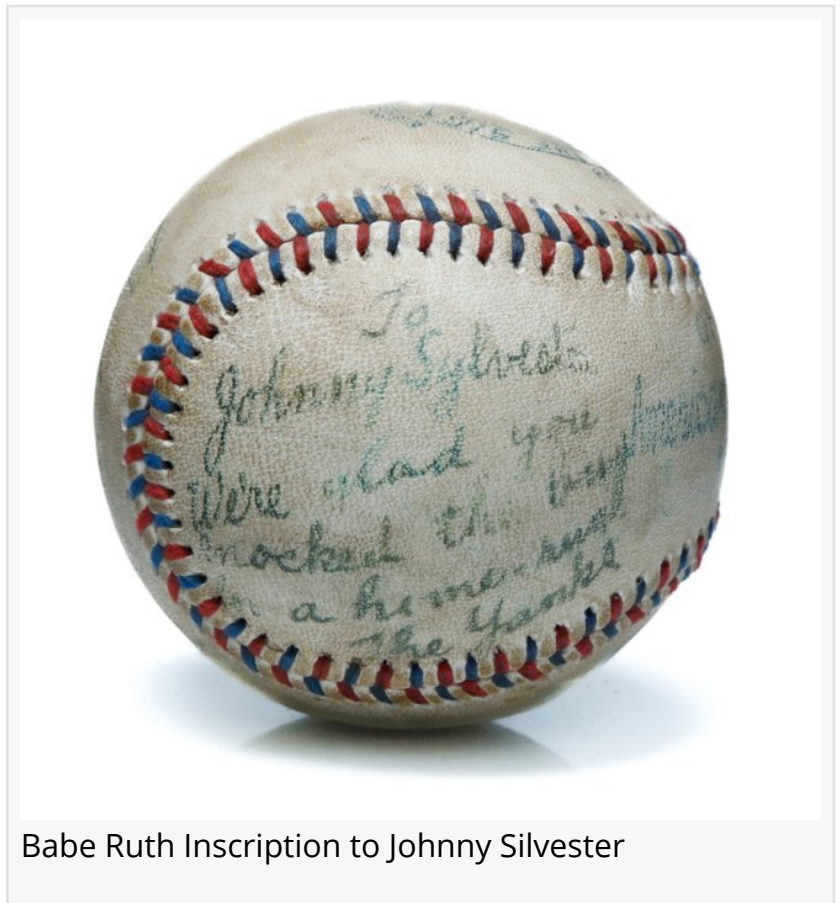 To
Johnny Sylvester
We're glad you
knocked the bug
a home-run
The Yanks
Babe Ruth Inscription to Johnny Silvester